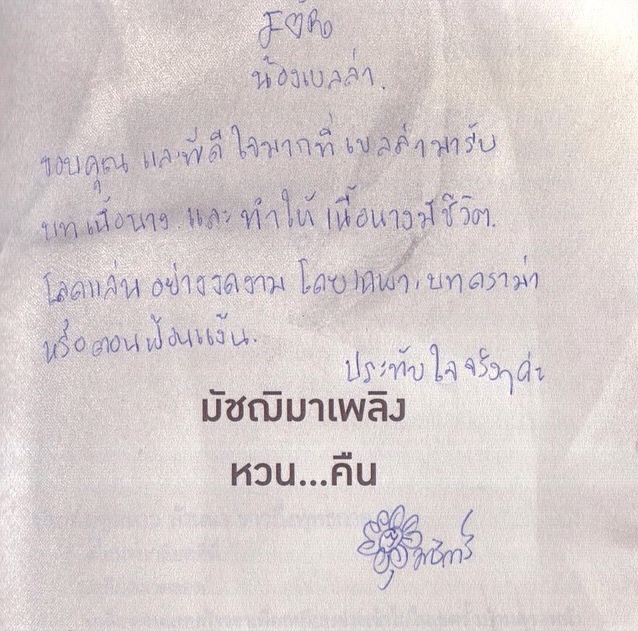 รัก
น้องเบลล่า.
ขอบคุณ และพี่ดีใจมากที่ เบลล่ามารับ
บทเนื้อนาง และ ทำให้ เนื้อนางมีชีวิต
โลดแล่น อย่างงดงาม โดยเฉพาะบทดราม่า
หรือตอนฟ้อนแง้น.
ประทับใจจริงๆค่ะ
มัชฌิมาเพลิง
หวน...คืน